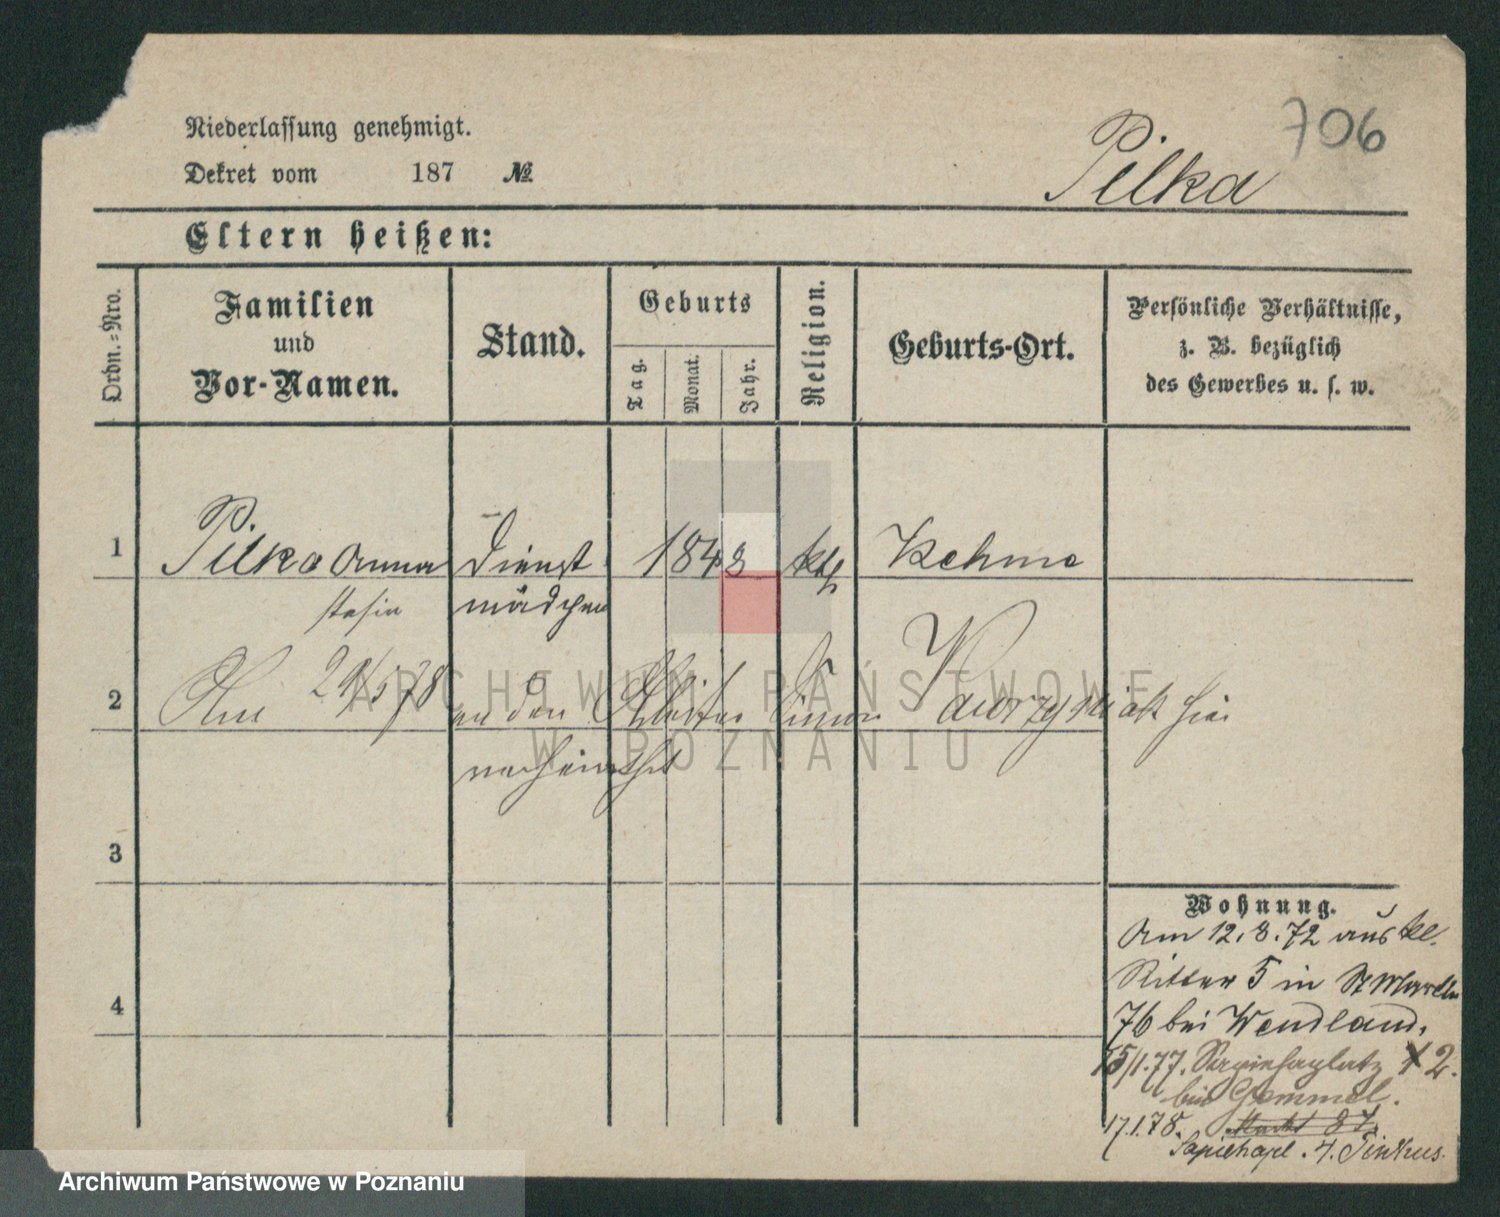 706
Niederlassung genehmigt.
Dekret vom 187 №
Pilka
Eltern heißen:
Ordn.=Nro.
Familien
und
Vor-Namen.
Stand.
Geburts
Tag.
Monat.
Jahr.
Religion.
Geburts-Ort.
Persönliche Verhältnisse,
z. B. bezüglich
des Gewerbes u. s. w.
1 Pilka Anna Dienst 1848 kth
stasia mädchen
2 Am 29/5 78 an den Arbeiter Wawrzyniak hier
verheirathet
ARCHIWUM PAŃSTWOWE
W POZNANIU
3
4
Wohnung.
Am 12.8.72 aus kl.
Ritter 5 in St Martin
76 bei Wendland.
15/1.77. Sapiehaplatz 2.
bei Gemmel.
17.1.78. Markt 87.
Sapiehapl. 7. Pinkus.
Archiwum Państwowe w Poznaniu